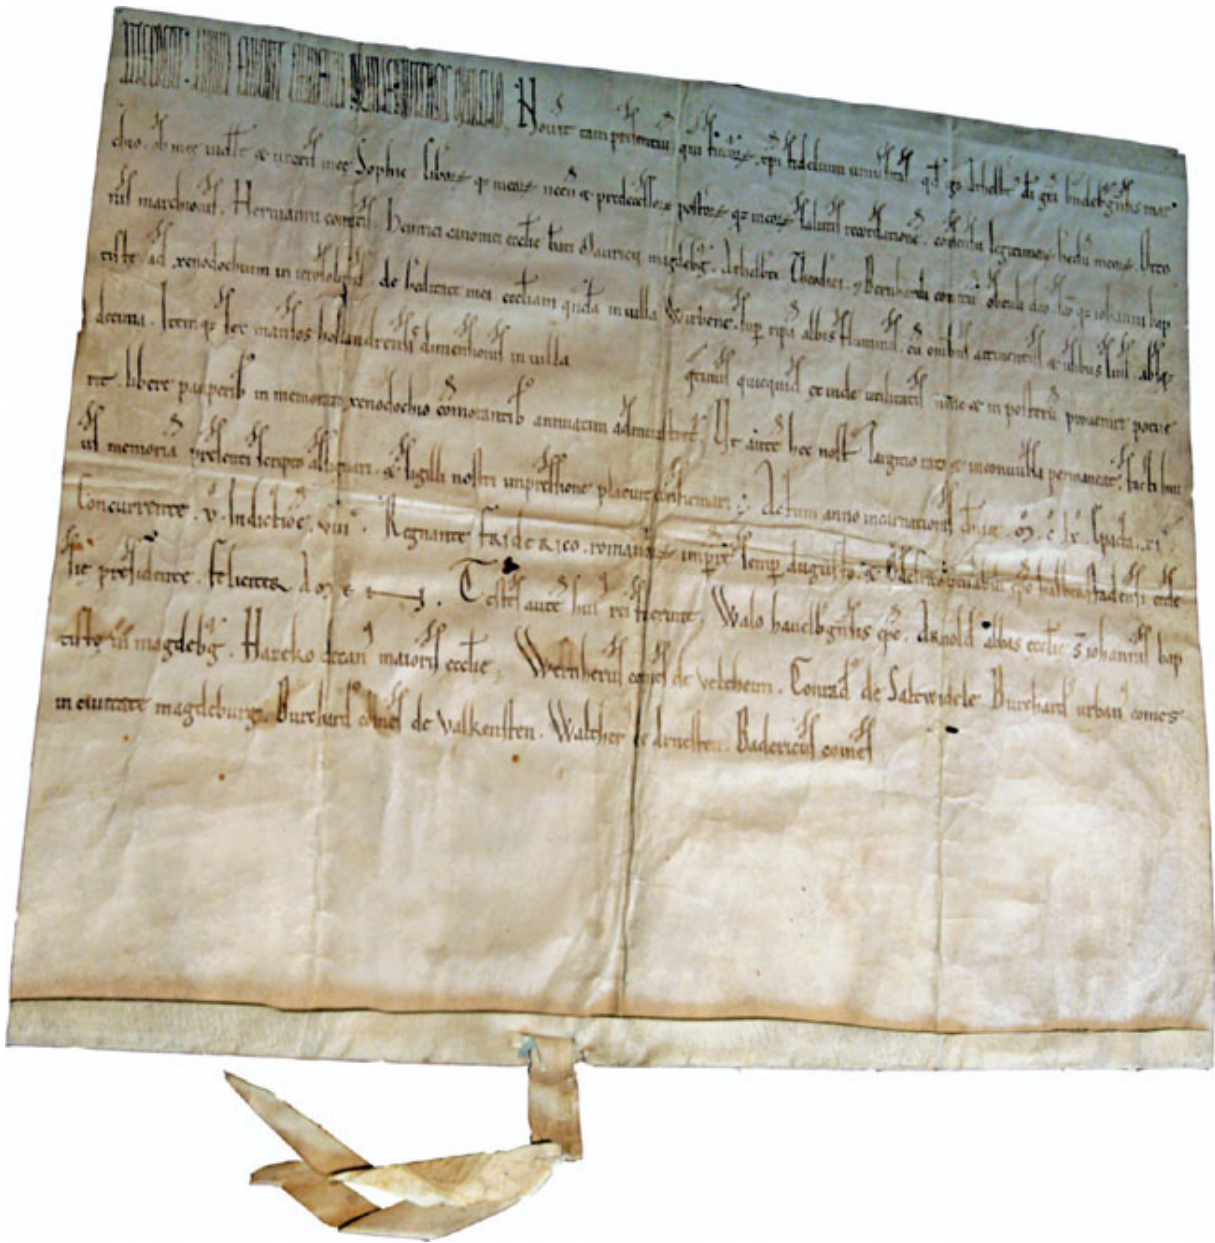 Noverit tam presentiu qui futuroꝝ xpi fidelium universitas qd ego Adhelbt di gra brandeburgensis mar
chio. ob mee uxoris mee Sophie libeꝝ qꝫ meoꝝ necn et predecessoꝝ postoꝝ qꝫ meoꝝ salutis recordatione. consensu legitimoꝝ hedum meoꝝ. Otto
nis marchionis. Hermanni comitis. Heinrici canonici ecclie bati Mauricii magdebg. Adhelbti Theodrici. & Bernhardi comitu obtuli deo bto qꝫ iohanni bap
tiste ad xenodochium in ierosolimis de heditate mea eccliam quda in villa Wirbene. sup ripa albis fluminis. cu omibus attinentiis et usibus suis. absqꝫ
decima. Item qꝫ sex mansos hollandrensis dimensionis in villa
quatinus quicquid exinde utilitatis nunc et in posteru provenire potue
rit. libere pauperibꝫ in memorato xenodochio comorantibꝫ annuatim administret. Ut aute hec nost largitio rata et inconvulsa permaneat. facti hui
us memoria presenti scripto assignari. et sigilli nostri impressione placuit confirmari. Actum anno incarnationis dnice. M. C. LX. Epacta. XI.
Concurrente. V. Indictione. VIII. Regnante FRIDERICO. romanoꝝ impre semp augusto. et Odelrico venabili epo halberstadensi ecclie
sue presidente. Feliciter AMEN. Testes aute hui rei fuerunt. Walo havelbgensis eps. Arnold abbas ecclie S iohannis bap
tiste in magdebg. Hazeko decan maioris ecclie. Wernherus comes de Veltheim. Conrad de Saltwidele Burchard urban comes
in civitate magdeburg. Burchard comes de Valkensten. Walther de Arnesten. Badericus comes